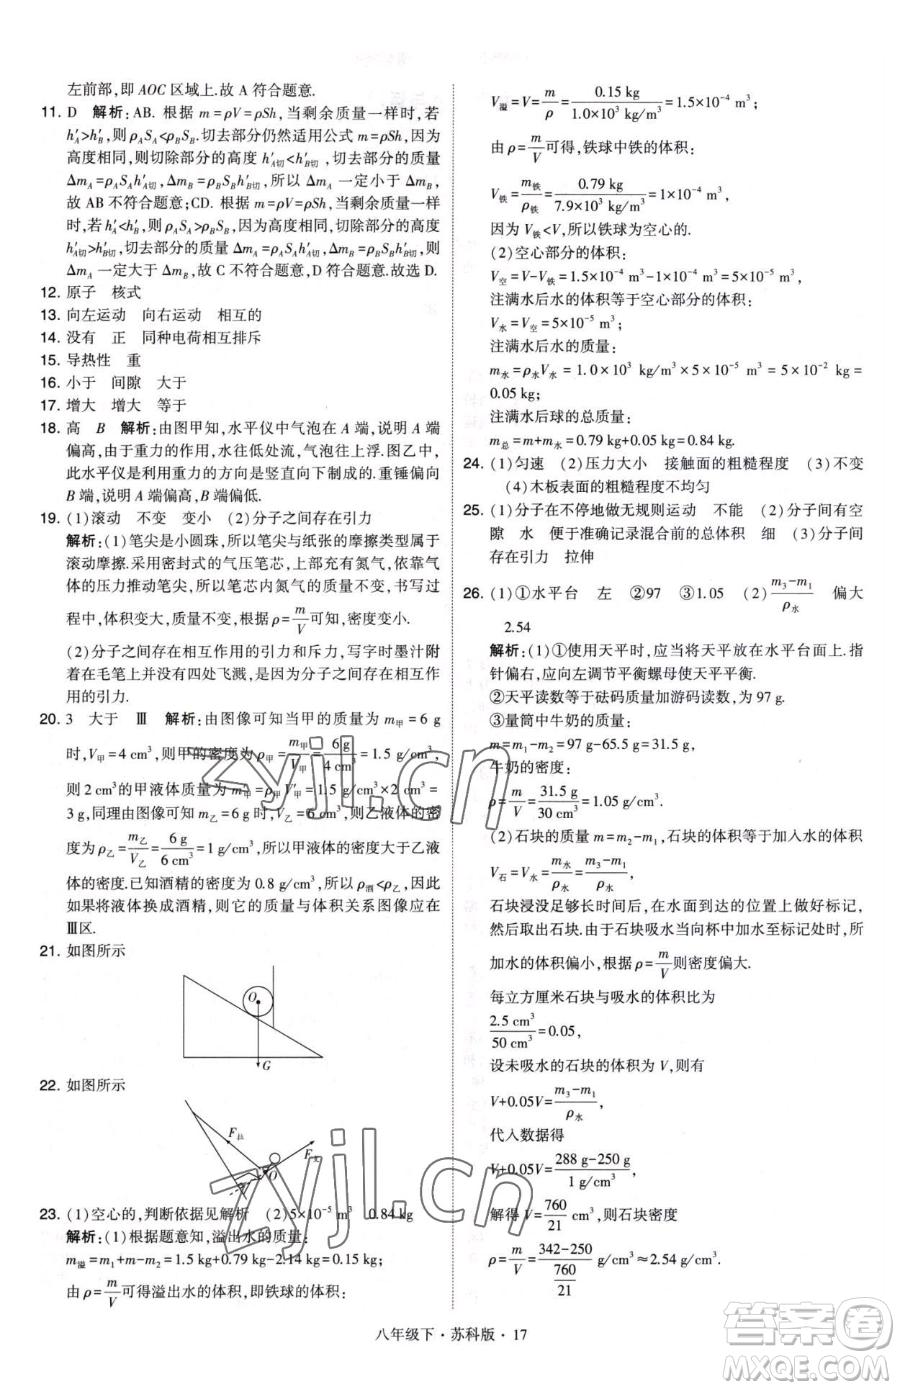 左前部,即 AOC 区域上.故 A 符合题意.
11. D 解析:AB. 根据 m=ρV=ρSh,当剩余质量一样时,若
h′A>h′B,则 ρASA<ρBSB.切去部分仍然适用公式 m=ρV=ρSh,因为
高度相同,则切除部分的高度 h′A切<h′B切,切去部分的质量
ΔmA=ρASAh′A切<ΔmB=ρBSBh′B切,所以 ΔmA 一定小于 ΔmB,
故 AB 不符合题意;CD. 根据题意知,当剩余质量一样时,若
h′A<h′B,则 ρASA>ρBSB. 因为高度相同,切除部分的高度
h′A切>h′B切,切去部分的质量 ΔmA=ρASAh′A切>ΔmB=ρBSBh′B切,
ΔmA 一定大于 ΔmB,故 C 不符合题意,D 符合题意.故选 D.
12. 原子 核式
13. 向左运动 向右运动 相互的
14. 没有 正 同种电荷相互排斥
15. 导热性 重
16. 小于 间隙 大于
17. 增大 增大 等于
18. 高 B 解析:由图甲知,水平仪中气泡在 A 端,说明 A 端
偏高,由于重力的作用,水往低处流,气泡上浮.图乙中,
此水平仪利用重力的方向是竖直向下制成的.重锤偏向
B 端,说明 A 端偏高,B 端偏低.
19. (1)滚动 不变 变小 (2)分子之间存在引力
解析:(1)笔尖是小圆珠,所以笔尖与纸张的摩擦类型属于
滚动摩擦.因采用密封式的气压笔芯,内有氮气,依靠气
体的压力推动笔尖,所以笔芯内氮气的质量不变.书写过
程中,体积变大,质量不变,根据 ρ=m/V可知,密度变小.
(2)分子之间存在相互作用的引力和斥力,写字时墨汁附
着在毛笔上没有四处飞溅,是因为分子之间存在相互作
用的引力.
20. 3 大于 Ⅲ 解析:由图像可知当甲的质量为 m甲=6 g
时,V甲=4 cm³,则甲的密度为 ρ甲=m甲/V甲=6 g/4 cm³=1.5 g/cm³,
则 2 cm³的甲液体质量为 m′甲=ρ甲V′甲=1.5 g/cm³×2 cm³=
3 g,同理由图像可知,当 m乙=6 g 时,V乙=6 cm³,则乙液体的密
度为 ρ乙=m乙/V乙=6 g/6 cm³=1 g/cm³,所以甲液体密度大于乙液
体的密度.已知酒精的密度为 0.8 g/cm³,可知 ρ酒<ρ乙.因此
如果将液体换成酒精,则它的质量与体积关系图像应在
Ⅲ区.
21. 如图所示
O
G
22. 如图所示
F拉
F支
O
23. (1)空心的,判断依据见解析 (2)5×10⁻⁵ m³ 0.84 kg
解析:(1)根据题意知,溢出水的质量:
m溢=m₁+m-m₂=1.5 kg+0.79 kg-2.14 kg=0.15 kg,
由 ρ=m/V可得溢出水的体积,即铁球的体积:
V溢=V=m/ρ=0.15 kg/1.0×10³ kg/m³=1.5×10⁻⁴ m³,
由 ρ=m/V可得,铁球中铁的体积:
V铁=m铁/ρ铁=0.79 kg/7.9×10³ kg/m³=1×10⁻⁴ m³,
因为 V铁<V,所以铁球是空心的.
(2)空心部分的体积:
V空=V-V铁=1.5×10⁻⁴ m³-1×10⁻⁴ m³=5×10⁻⁵ m³,
注满水后水的体积等于空心部分的体积:
V水=V空=5×10⁻⁵ m³;
注满水后水的质量:
m水=ρ水V水=1.0×10³ kg/m³×5×10⁻⁵ m³=5×10⁻² kg=
0.05 kg;
注满水后球的总质量:
m总=m+m水=0.79 kg+0.05 kg=0.84 kg.
24. (1)匀速 (2)压力大小 接触面的粗糙程度 (3)不变
(4)木板表面的粗糙程度不均匀
25. (1)分子在不停地做无规则运动 不能 (2)分子间有空
隙 水 便于准确记录混合前的总体积 细 (3)分子间
存在引力 拉伸
26. (1)①水平台 左 ②97 ③1.05 (2)m₃-m₁/ρ水 偏大
2.54
解析:(1)①使用天平时,应当将天平放在水平台面上.指
针偏右,应向左调节平衡螺母使天平平衡.
②天平读数等于砝码质量加游码读数,为 97 g.
③量筒中牛奶的质量:
m=m₁-m₂=97 g-65.5 g=31.5 g,
牛奶的密度:
ρ=m/V=31.5 g/30 cm³=1.05 g/cm³.
(2)石块的质量 m=m₂-m₁,石块的体积等于加入水的体积
V石=V水=m水/ρ水=m₃-m₁/ρ水.
石块浸没足够长时间,在水面到达的位置上做好标记,
然后取出石块.由于石块吸水当向杯中加水至标记处时,所
加水的体积偏小,根据 ρ=m/V则密度偏大.
每立方厘米石块与吸水的体积比为
2.5 cm³/50 cm³=0.05,
设未吸水的石块的体积为 V,则有
V+0.05V=m₃-m₁/ρ水,
代入数据得
V+0.05V=288 g-250 g/1 g/cm³,
解得 V=760/21 cm³,则石块密度
ρ=m/V=342-250/760/21 g/cm³≈2.54 g/cm³.
八年级下·苏科版·17
zyjl.cn
zyjl.cn
答案圈
MXQE.COM